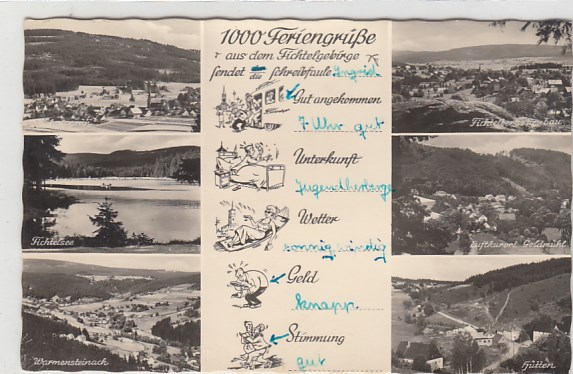 1000 Feriengrüße
aus dem Fichtelgebirge
sendet die schreibfaule Ingrid
Gut angekommen
7 Uhr gut
Unterkunft
Jugendherberge
Wetter
sonnig windig
Geld
knapp
Stimmung
gut
Fichtelsee
Warmensteinach
Luftkurort Goldmühl
Hütten